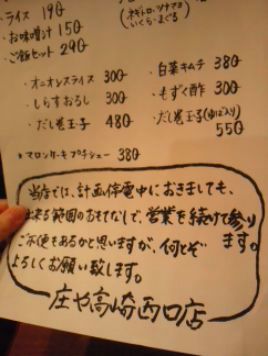 ライス 190
・お味噌汁 150
・ご飯セット 290
(ネギトロ・ツナマヨ
いくら・まぐろ)
・オニオンスライス 300
・しらすおろし 300
・だし巻玉子 480
・白菜キムチ 380
・もずく酢 300
・だし巻玉子(ゆば入り)
550
*マロンケーキプチシュー 380
当店では、計画停電中におきましても、
出来る範囲のおもてなしで、営業を続けて参ります。
ご不便もあるかと思いますが、何とぞ
よろしくお願い致します。
庄や高崎西口店